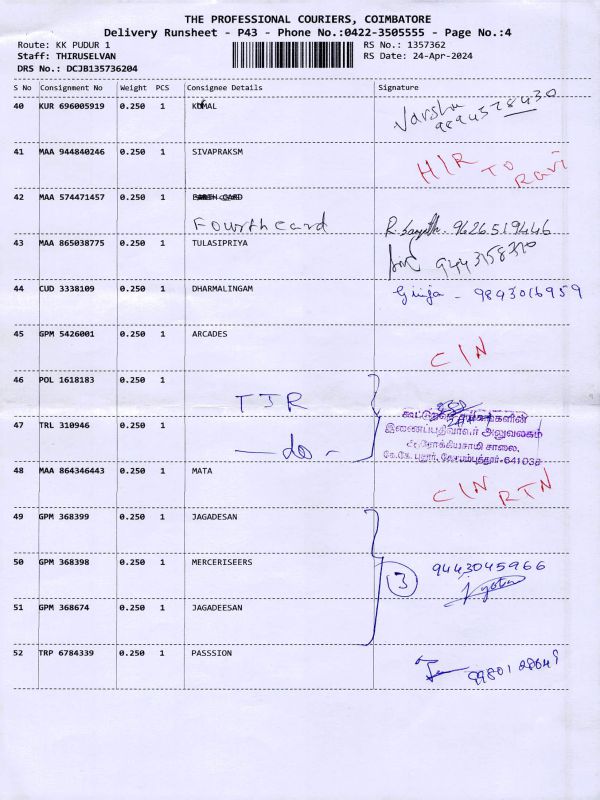 THE PROFESSIONAL COURIERS, COIMBATORE
Delivery Runsheet - P43 - Phone No.:0422-3505555 - Page No.:4
Route: KK PUDUR 1
Staff: THIRUSELVAN
DRS No.: DCJB135736204
RS No.: 1357362
RS Date: 24-Apr-2024
S No Consignment No Weight PCS Consignee Details Signature
40 KUR 696005919 0.250 1 KOMAL Varsha
9894578430
41 MAA 944840246 0.250 1 SIVAPRAKSM H/R TO Ravi
42 MAA 574471457 0.250 1
Fourth card R. 9626519446
43 MAA 865038775 0.250 1 TULASIPRIYA 9443158370
44 CUD 3338109 0.250 1 DHARMALINGAM Girija - 9843016959
45 GPM 5426001 0.250 1 ARCADES C/N
46 POL 1618183 0.250 1 TJR
47 TRL 310946 0.250 1 - do -
கூட்டுறவு சங்கங்களின்
இணைப்பதிவாளர் அலுவலகம்
சாலை,
கே.கே. புதூர், கோயம்புத்தூர்-641038
48 MAA 864346443 0.250 1 MATA C/N RTN
49 GPM 368399 0.250 1 JAGADESAN
50 GPM 368398 0.250 1 MERCERISEERS 3 9443045966
51 GPM 368674 0.250 1 JAGADEESAN
52 TRP 6784339 0.250 1 PASSSION